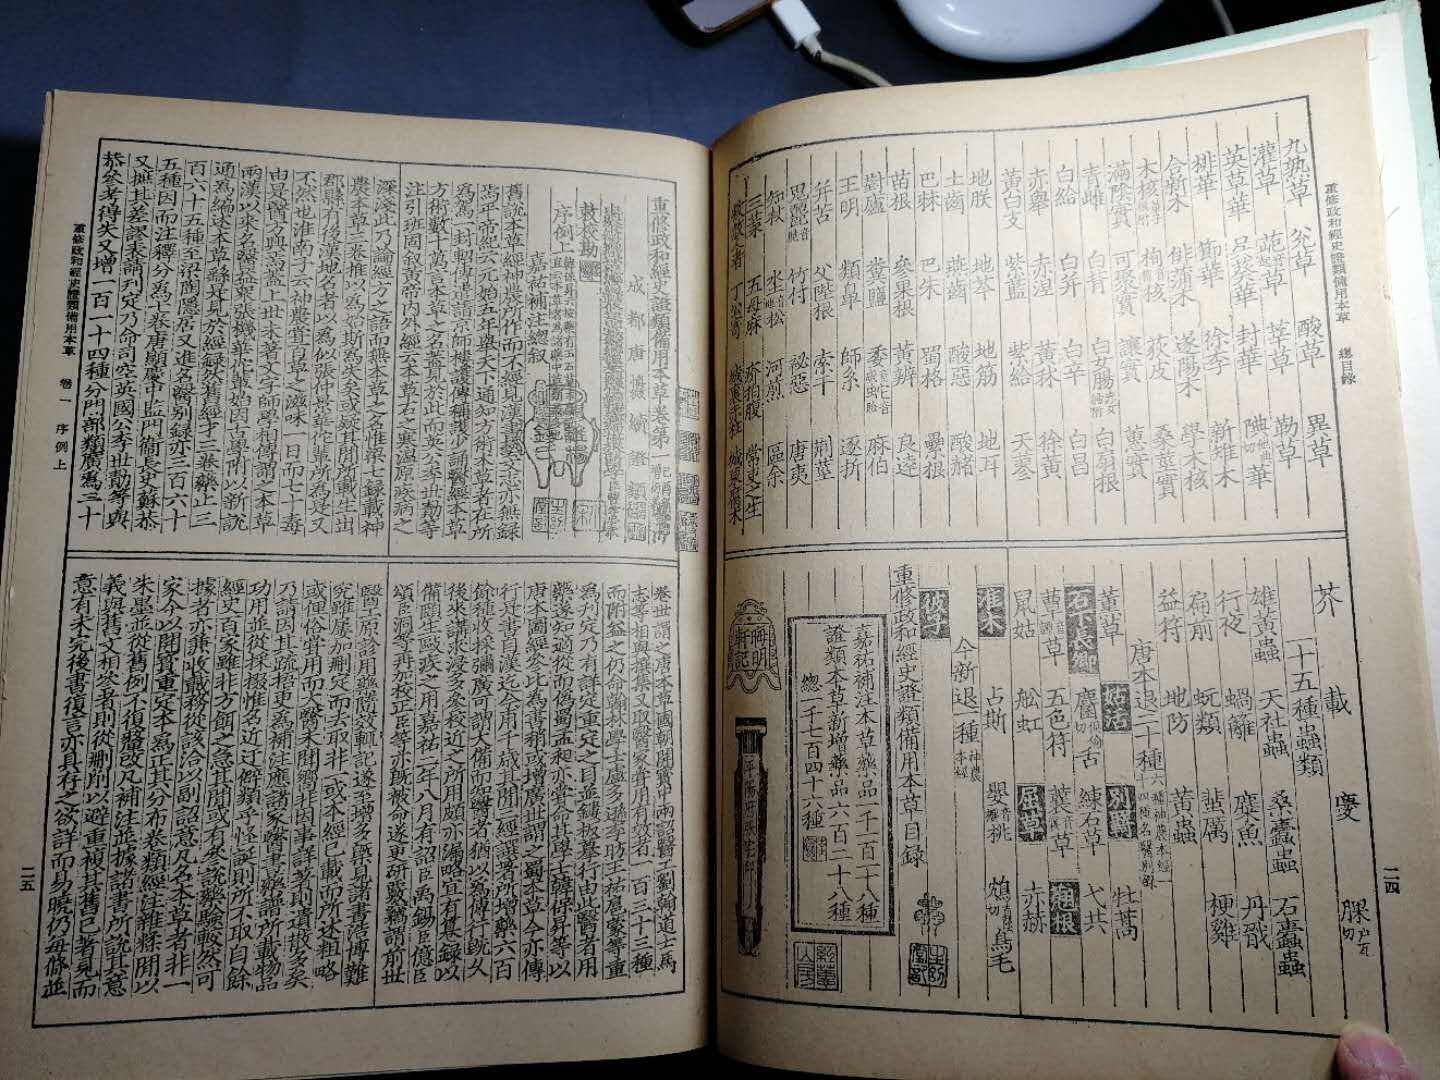 重修政和經史證類備用本草
總目録
二四
九熟草 兊草 酸草 異草
灌草 葩草 莘草 勒草
英草華 吕葵華 封華 華
排華 節華 徐李 新雉木
合新木 俳蒲木 遂陽木 學木核
木核 栒核 荻皮 桑莖實
滿陰實 可聚實 讓實 蕙實
青雌 白背 白女腸 白扇根
白給 白并 白辛 白昌
赤舉 赤涅 黃秫 徐黃
黃白支 紫藍 紫給 天蓼
地朕 地芩 地筋 地耳
土齒 燕齒 酸惡 酸赭
巴棘 巴朱 蜀格 壘根
苗根 參果根 黃辨 良達
對廬 糞藍 委蛇 麻伯
王明 類鼻 師系 逐折
并苦 父陛根 索干 荆莖
鬼䕲 竹付 祕惡 唐夷
知杖 河煎 區余
三菜 五母麻 疥拍腹 常吏之生
救赦人者 丁公寄 城裏赤柱 城東腐木
芥 載 慶 腂户瓦切
一十五種蟲類
雄黃蟲 天社蟲 桑蠹蟲 石蠹蟲
行夜 蝸籬 麋魚 丹戩
扁前 蚖類 蜚厲 梗雞
益符 地防 黃蟲
唐本退二十種
薰草 姑活 别羈 牡蒿
石下長卿 麕舌 練石草 弋共
蕈草 五色符 蘘草 粗根
鼠姑 舩虹 屈草 赤赫
今新退一種神農本經
占斯 嬰桃 鴆鳥毛
彼子
重修政和經史證類備用本草目録
嘉祐補注本草藥品一千一百一十八種
證類本草新增藥品六百二十八種
總一千七百四十六種
晦明軒記
平陽府張宅印
重修政和經史證類備用本草卷第一
成都唐慎微續證類
敕校勘
序例上
嘉祐補注總叙
舊說本草經神農所作而不經見漢書藝文志亦無録
焉平帝紀云元始五年舉天下通知方術本草者在所
爲駕一封軺傳遣詣京師樓護傳稱護少誦醫經本草
方術數十萬言本草之名蓋見於此而英公李世勣等
注引班固叙黃帝内外經云本草石之寒溫原疾病之
深淺此乃論經方之語而無本草之名惟梁七録載神
農本草三卷推以爲始斯爲失矣或疑其間所載生出
郡縣有後漢地名者以爲似張仲景華佗輩所爲是又
不然也淮南子云神農嘗百草之滋味一日而七十毒
由是醫方興焉蓋上世未著文字師學相傳謂之本草
兩漢以來名醫益衆張機華佗輩始因古學附以新說
通爲編述本草繇是見於經録然舊經才三卷藥止三
百六十五種至梁陶隱居又進名醫别録亦三百六十
五種因而注釋分爲七卷唐顯慶中監門衛長史蘇恭
又摭其差謬表請刋定乃命司空英國公李世勣等與
恭參考得失又增一百一十四種分門部類廣爲二十
卷世謂之唐本草國朝開寶中兩詔醫工劉翰道士馬
志等相與撰集又取醫家嘗用有效者一百三十三種
而附益之仍命翰林學士盧多遜李昉王祐扈蒙等重
爲刋定乃有詳定重定之目並鏤板摹行由此醫者用
藥遂知適從而僞蜀孟昶亦嘗命其學士韓保昇等以
唐本圖經參比爲書稍或增廣世謂之蜀本草今亦傳
行是書自漢迄今甫千歳其間三經譔著所增藥六百
餘種收採彌廣可謂大備而知醫者猶以爲傳行既久
後來講求浸多參校近之所用頗亦漏略宜有纂録以
備頤生歐疾之用嘉祐二年八月有詔臣禹錫臣億臣
頌臣洞等再加校正臣等亦既被命遂更研覈竊謂前世
醫工原診用藥隨效輒記遂至增多槩見諸書浩博難
究雖屢加刪定而去取非一或本經已載而所述粗略
或俚俗嘗用而太醫未聞嚮非因事詳著則遺散多矣
乃請因其疏捂更爲補注應諸家醫書藥譜所載物品
功用並從採掇惟名近迂僻類乎怪誕則所不取自餘
經史百家雖非方餌之急其間或有參說藥驗較然可
據者亦兼收載務從該洽以副詔意凡名本草者非一
家今以開寶重定本爲正其分布卷類經注雜糅間以
朱墨並從舊例不復釐改凡補注並據諸書所說其意
義與舊文相參者則從刪削以避重複其舊已著見而
意有未完後書復言亦具存之欲詳而易曉仍每條並
重修政和經史證類備用本草
卷一 序例上
二五